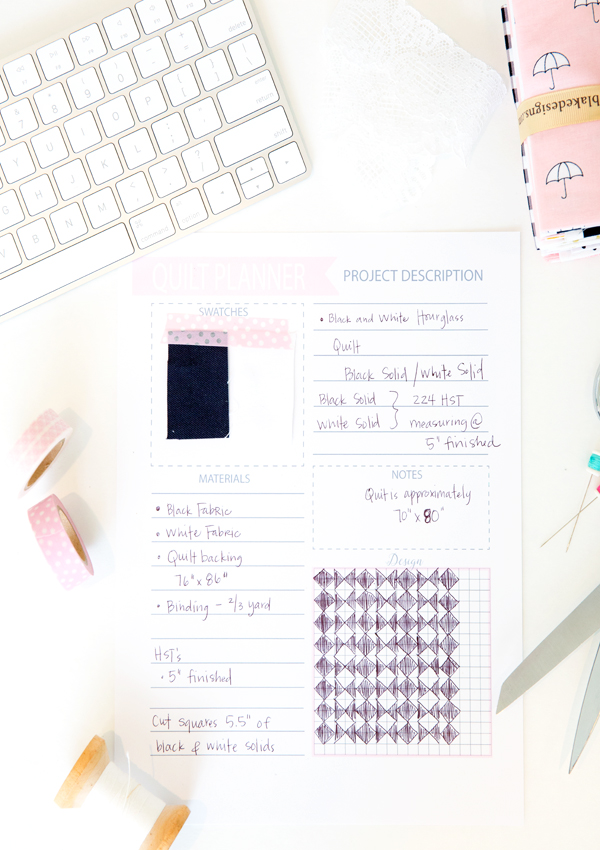 delete
return
shift
command
option
return
7
8
9
Y
U
I
O
P
G
H
J
K
L
B
N
M
blakedesigns.com
QUILT PLANNER
PROJECT DESCRIPTION
SWATCHES
• Black and White Hourglass
Quilt
Black Solid / White Solid
Black Solid } 224 HST
White Solid } measuring @
5" finished
NOTES
Quilt is approximately
70" x 80"
MATERIALS
• Black Fabric
• White Fabric
• Quilt backing
76" x 86"
• Binding - 2/3 yard
HST's
• 5" finished
Cut squares 5.5" of
black & white solids
Design